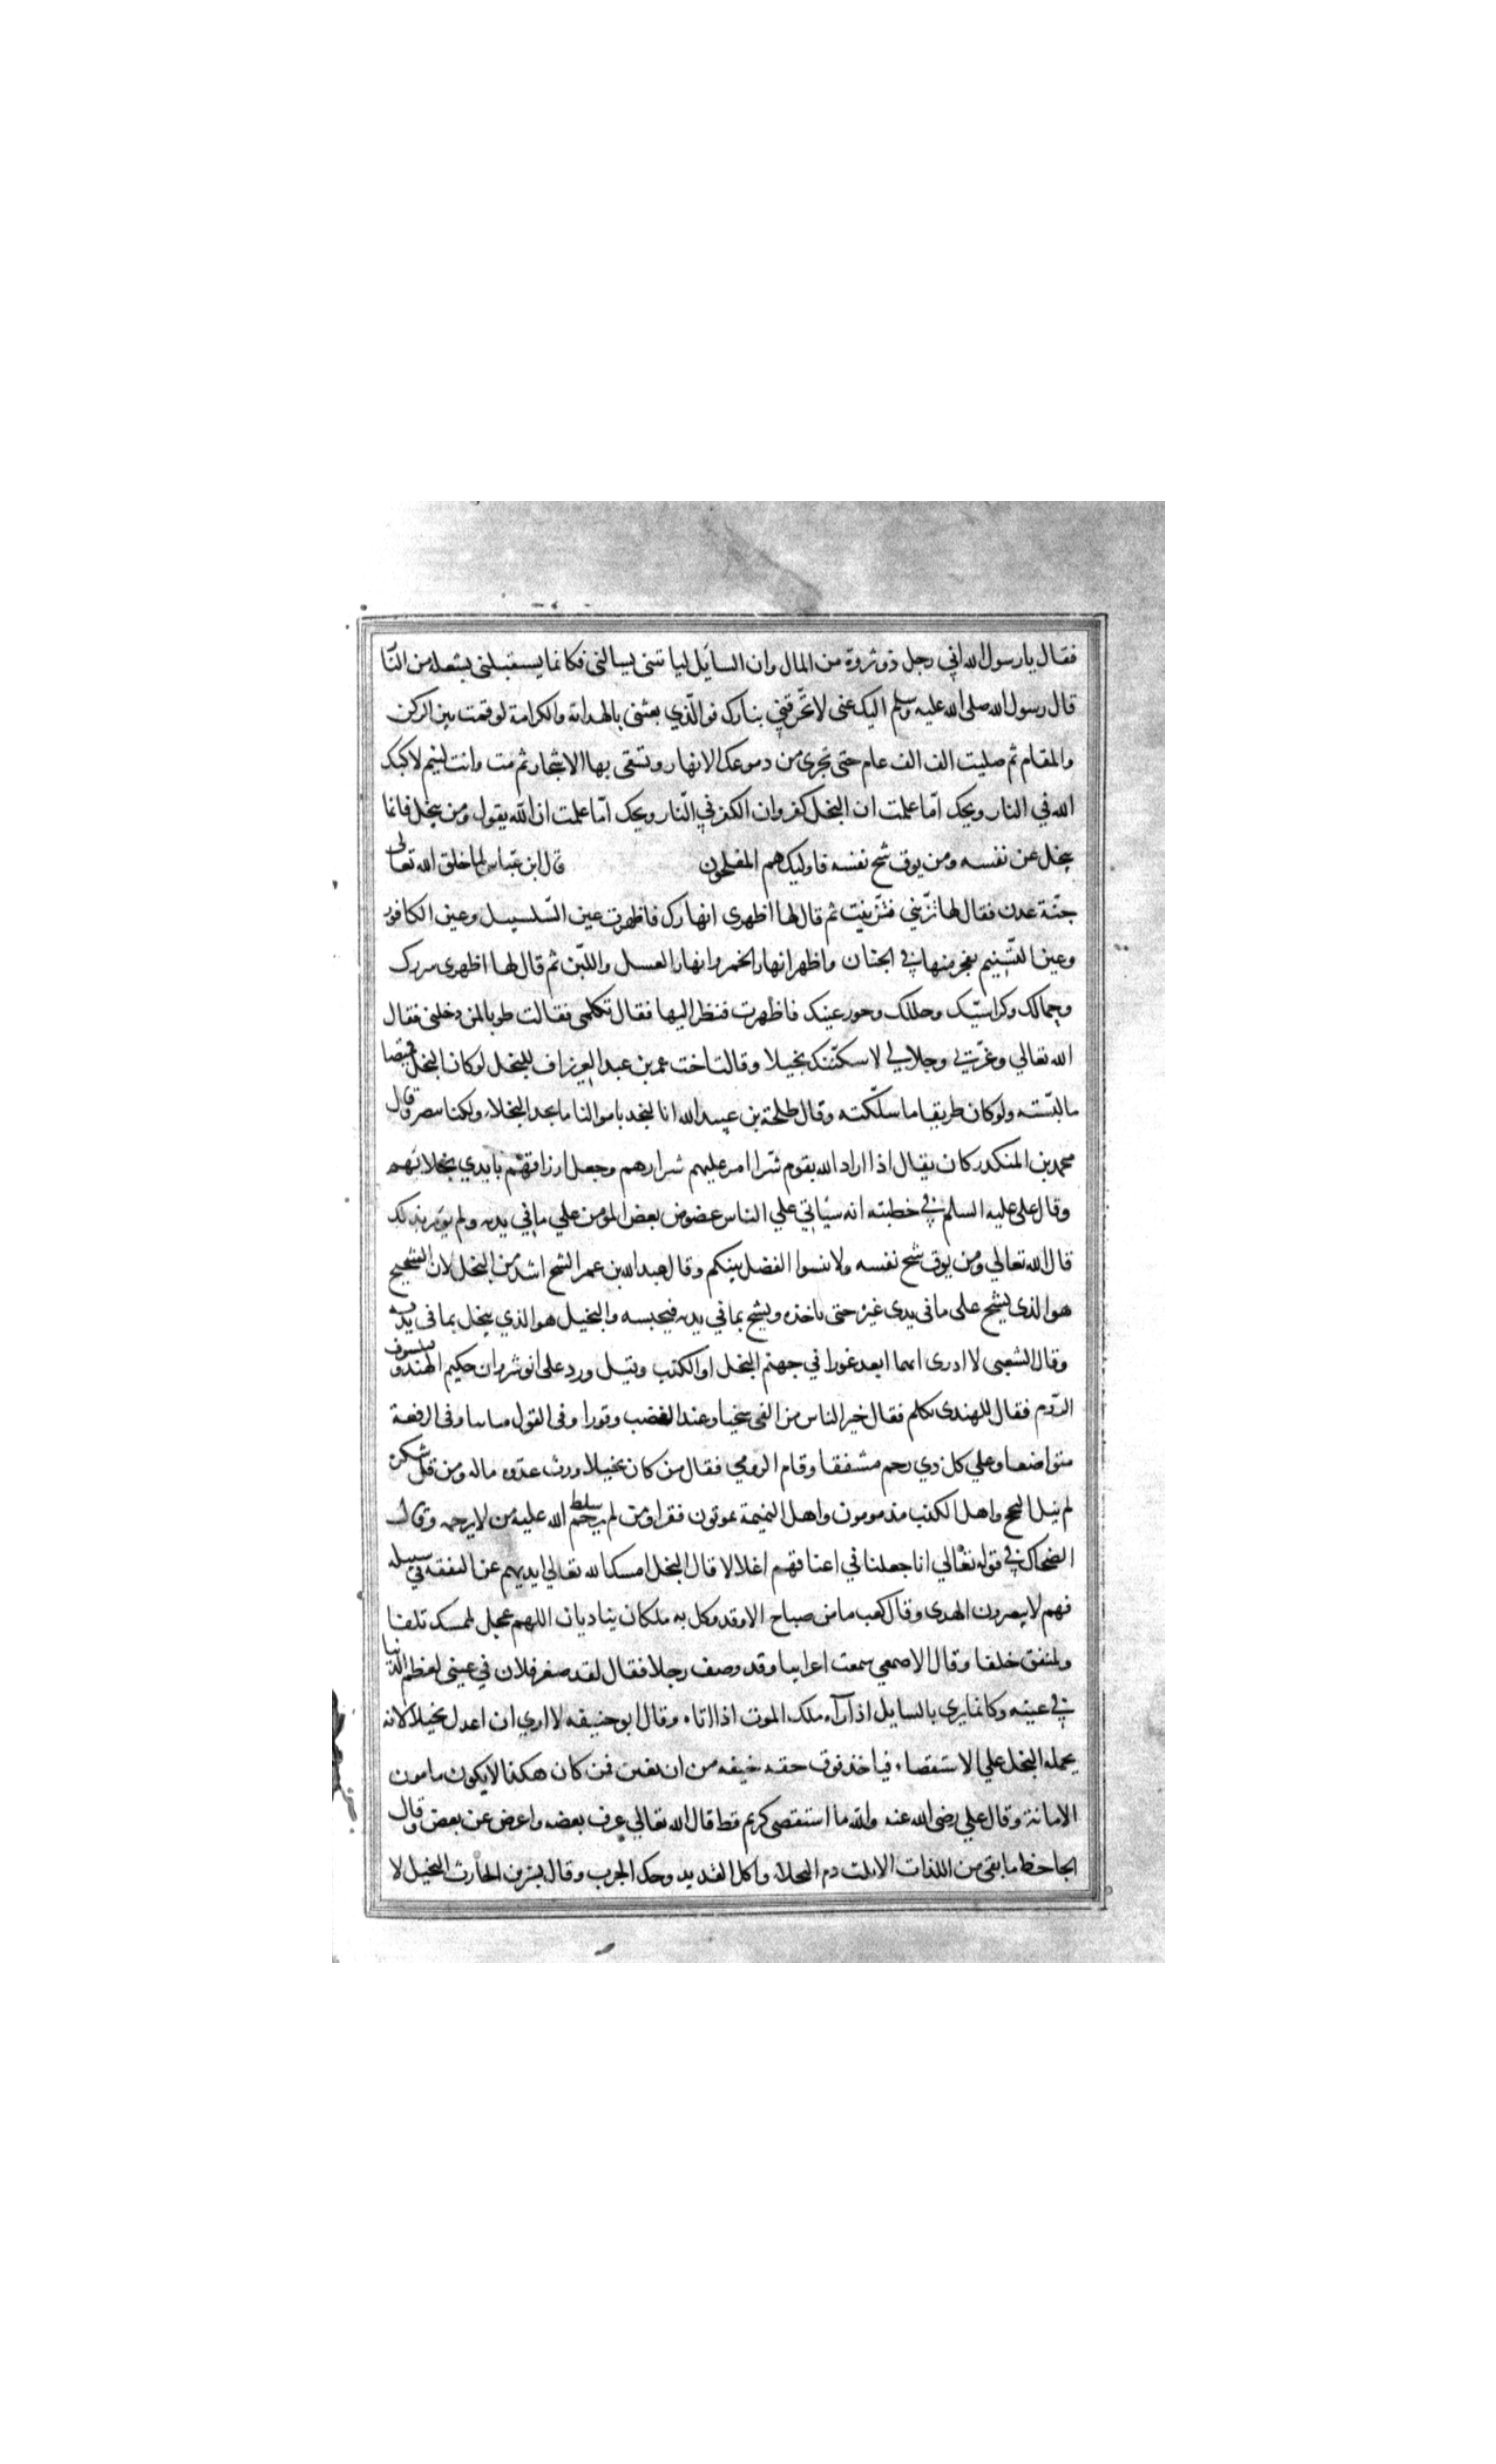 فقال يا رسول الله اني رجل ذو ثروة من المال وان السايل لياتيني يسالني فكانما يستقبلني بشعلة من النا
قال رسول الله صلى الله عليه وسلم اليك عنى لا تحرقني بنارك فوالذي بعثني بالهداية والكرامة لو قمت بين الركن
والمقام ثم صليت الف الف عام حتى تجرى من دموعك الانهار وتسقى بها الاشجار ثم مت وانت لئيم لاكبك
الله في النار ويحك اما علمت ان البخل كفر وان الكفر في النار ويحك اما علمت ان الله يقول ومن يبخل فانما
يبخل عن نفسه ومن يوق شح نفسه فاوليك هم المفلحون قال ابن عباس لما خلق الله تعالى
جنة عدن فقال لها تزيني فتزينت ثم قال لها اظهرى انهارك فاظهرت عين السلسبيل وعين الكافور
وعين التسنيم فجر منها في الجنان واظهر انهار الخمر وانهار العسل واللبن ثم قال لها اظهرى سررك
وحجالك وكراسيك وحللك وحور عينك فاظهرت فنظر اليها فقال تكلمى فقالت طوبا لمن دخلني فقال
الله تعالي وعزتي وجلالي لا سكنتك بخيلا وقالت اخت عمر بن عبد العزيز اف للبخل لو كان البخل قميصا
ما لبسته ولو كان طريقا ما سلكته وقال طلحة بن عبيد الله انا لنجد باموالنا ما يجد البخلاء ولكنا نصبر وقال
محمد بن المنكدر كان يقال اذا اراد الله بقوم شرا امر عليهم شرارهم وجعل ارزاقهم بايدي بخلائهم
وقال على عليه السلم في خطبته انه سياتي علي الناس عضوض بعض المومن علي ما في يديه ولم يومر بذلك
قال الله تعالي ومن يوق شح نفسه ولا تنسوا الفضل بينكم وقال عبد الله بن عمر الشح اشد من البخل لان الشحيح
هو الذى يشح على ما في يدى غيره حتى ياخذه ويشح بما في يديه فيحبسه والبخيل هو الذي يبخل بما في يديه
وقال الشعبى لا ادرى ايهما ابعد غورا في جهنم البخل او الكذب وقيل ورد على انوشروان حكيم الهند وفيلسوف
الروم فقال للهندى تكلم فقال خير الناس من القى سخيا وعند الغضب وقورا وفي القول متانيا وفي الرفعة
متواضعا وعلي كل ذي رحم مشفقا وقام الرومي فقال من كان بخيلا ورث عدوه ماله ومن قل شكره
لم ينل النجح واهل الكذب مذمومون واهل النميمة يموتون فقرا ومن لم يرحم سلط الله عليه من لا يرحمه وقال
الضحاك في قوله تعالي انا جعلنا في اعناقهم اغلالا قال البخل امسك الله تعالى ايديهم عن النفقه في سبيله
فهم لا يبصرون الهدى وقال كعب ما من صباح الا وقد وكل به ملكان يناديان اللهم عجل لممسك تلفا
ولمنفق خلفا وقال الاصمعي سمعت اعرابيا وقد وصف رجلا فقال لقد صغر فلان في عيني لعظم الدنيا
في عينه وكانما يرى بالسايل اذا رآه ملك الموت اذا اتاه وقال ابو حنيفه لا ارى ان اعدل بخيلا لانه
يحمله البخل علي الاستقصاء فياخذ فوق حقه خيفه من ان يغبن فمن كان هكذا لا يكون مامون
الامانة وقال علي رضى الله عنه والله ما استقصى كريم قط قال الله تعالي عرف بعضه واعرض عن بعض وقال
الجاحظ ما بقي من اللذات الا ثلث ذم البخلاء واكل القديد وحك الجرب وقال بشر بن الحارث البخيل لا